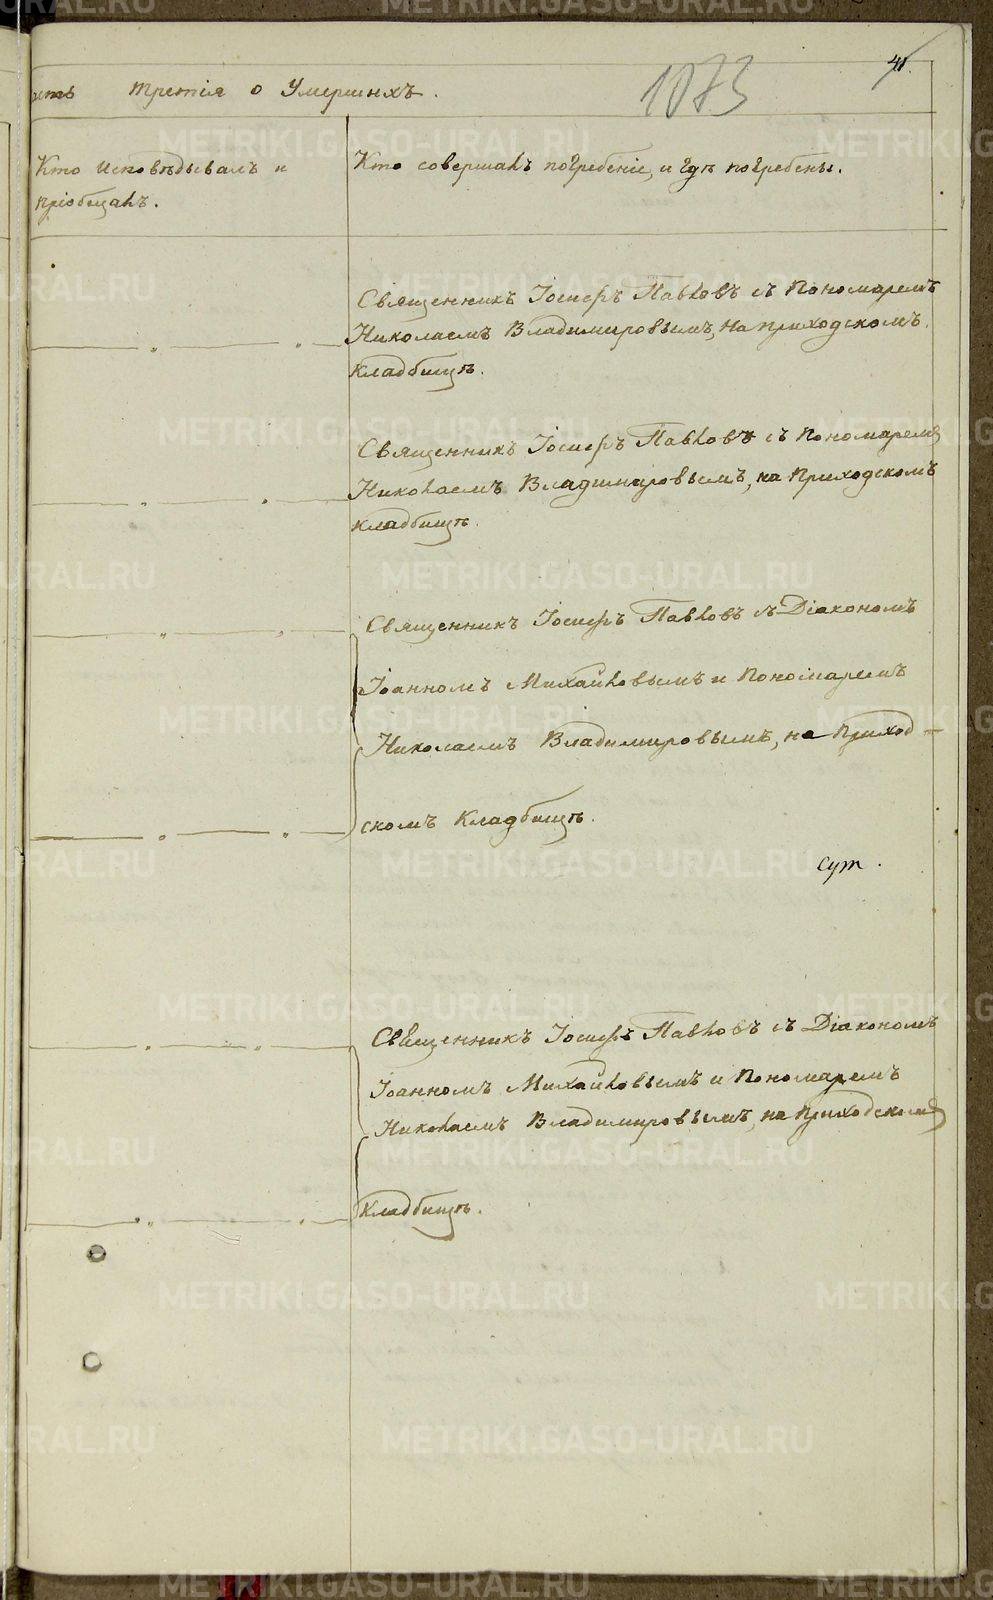 41.
1073
асть третія о Умершихъ.
Кто исповѣдывалъ и
пріобщалъ.
Кто совершалъ погребеніе, и гдѣ погребены.
Священникъ Іосифъ Павловъ съ Пономаремъ
Николаемъ Владимировымъ, на приходскомъ
кладбищѣ.
Священникъ Іосифъ Павловъ съ Пономаремъ
Николаемъ Владимировымъ, на Приходскомъ
кладбищѣ.
Священникъ Іосифъ Павловъ съ Діакономъ
Іоанномъ Михайловымъ и Пономаремъ
Николаемъ Владимировымъ, на Приход=
скомъ Кладбищѣ.
Священникъ Іосифъ Павловъ съ Діакономъ
Іоанномъ Михайловымъ и Пономаремъ
Николаемъ Владимировымъ, на Приходскомъ
Кладбищѣ.
METRIKI.GASO-URAL.RU